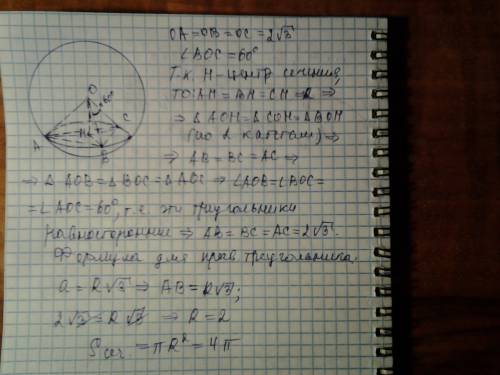 OA=OB=OC=2√3
∠BOC=60°
Т.к. H-центр сечения,
то: AH=BH=CH=R ⇒
⇒ △AOH=△COH=△BOH
(по 2 катетам) ⇒
⇒ AB=BC=AC ⇒
⇒ △AOB=△BOC=△AOC ⇒ ∠AOB=∠BOC=
=∠AOC=60°, т.е. эти треугольники
равносторонние ⇒ AB=BC=AC=2√3.
Формула для прав. треугольника.
a=R√3 ⇒ AB=R√3;
2√3=R√3 ⇒ R=2
Sсеч=πR²=4π
O
60°
A
H
C
B